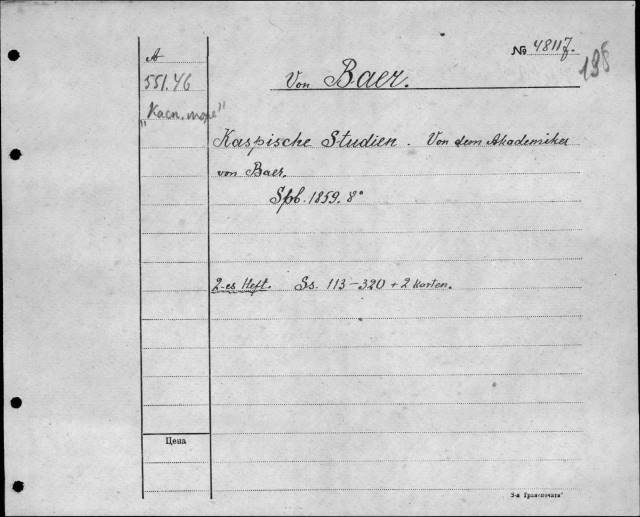 № 4811
198
A
551.46
"Касп. море"
Von Baer.
Kaspische Studien. Von dem Akademiker
von Baer.
Spb. 1859. 8°
2-es Heft. Ss. 113-320 + 2 Karten.
Цена